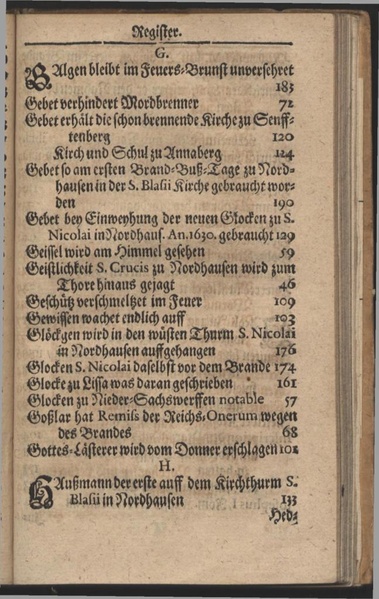 Register.
G.
GAlgen bleibt im Feuers-Brunst unversehret
183
Gebet verhindert Mordbrenner 72
Gebet erhält die schon brennende Kirche zu Senff-
tenberg 120
Kirch und Schul zu Annaberg 124
Gebet so am ersten Brand-Buß-Tage zu Nord-
hausen in der S. Blasii Kirche gebraucht wor-
den 190
Gebet bey Einweyhung der neuen Glocken zu S.
Nicolai in Nordhaus. An. 1630. gebraucht 129
Geissel wird am Himmel gesehen 59
Geistlichkeit S. Crucis zu Nordhausen wird zum
Thore hinaus gejagt 46
Geschütz verschmeltzet im Feuer 109
Gewissen wachet endlich auff 103
Glöckgen wird in den wüsten Thurm S. Nicolai
in Nordhausen auffgehangen 176
Glocken S. Nicolai daselbst vor dem Brande 174
Glocke zu Lissa was daran geschrieben 161
Glocken zu Nieder-Sachswerffen notable 57
Goßlar hat Remiss der Reichs-Onerum wegen
des Brandes 68
Gottes-Lästerer wird vom Donner erschlagen 101
H.
HAußmann der erste auff dem Kirchthurm S.
Blasii in Nordhausen 133
Hed-